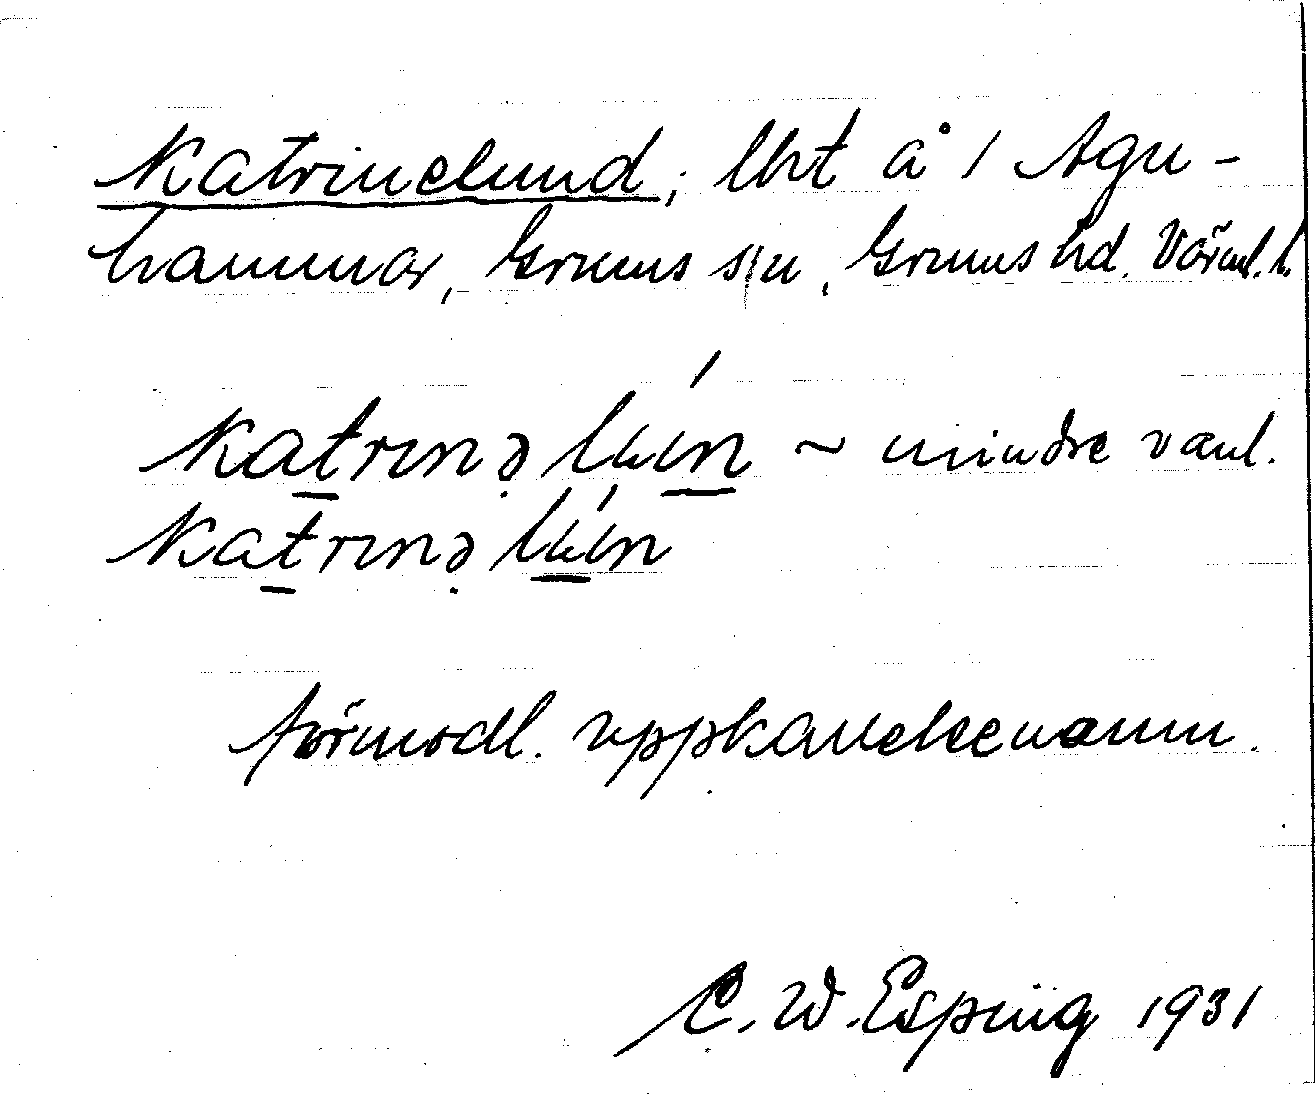 Katrinelund, lht å 1 Agn-
hammar, Grums sn, Grums hd. Värml. l.
katrinə lún ~ mindre vanl.
katrinə lún
förmodl. uppkallelsenamn.
C. W. Esping 1931